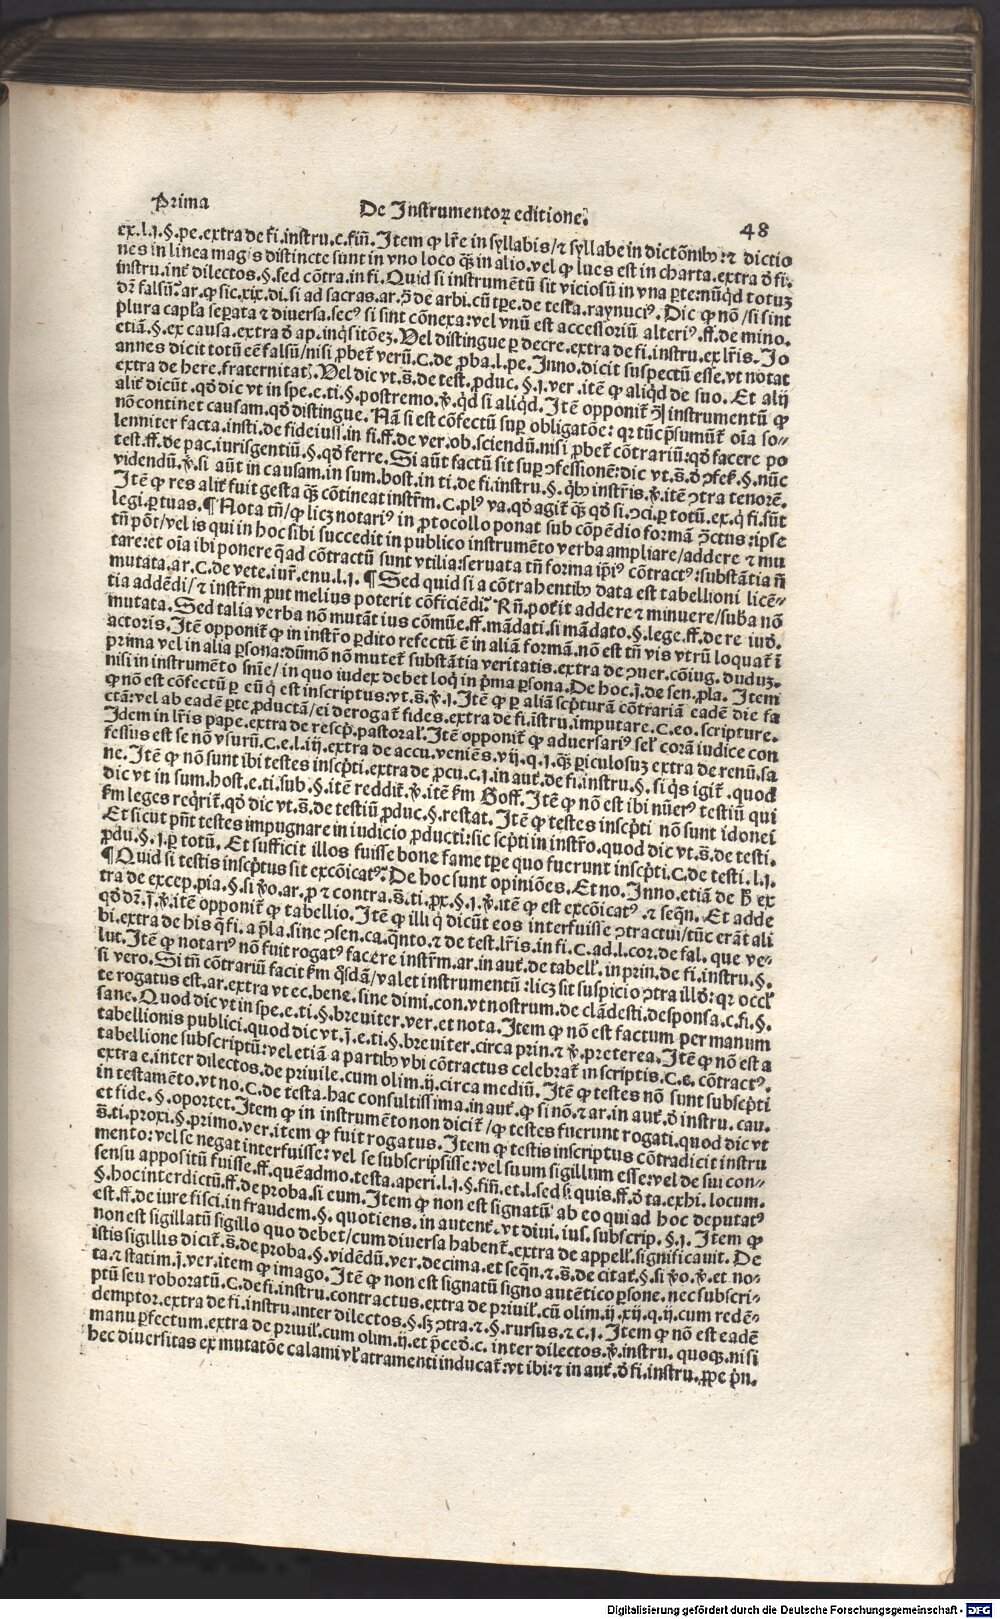 Prima
De Instrumentoꝝ editione.
48
ex.l.j.§.pe.extra de fi.instru.c.fiñ. Item ꝙ lr̃e in syllabis/⁊ syllabe in dictõnibꝰ:⁊ dictio
nes in linea magis distincte sunt in vno loco qʒ in alio.vel ꝙ lues est in charta.extra ð fi.
instru.int̃ dilectos.§.sed cõtra.in fi. Quid si instrumẽtũ sit viciosũ in vna ꝑte:nũqd totuʒ
dr̃ falsũ? ar.ꝙ sic.xix.di.si ad sacras.ar.ꝯ̃ de arbi.cũ tꝑe.de testa.raynuciꝰ. Dic ꝙ nõ/si sint
plura capl̃a seꝑata ⁊ diuersa.secꝰ si sint cõnexa:vel vnũ est accessoriũ alteriꝰ.ff.de mino.
etiã.§.ex causa.extra ð ap.inq̃sitõeʒ. Vel distingue ꝑ decre.extra de fi.instru.ex lr̃is. Jo
annes dicit totũ eẽ falsũ/nisi ꝓbet̃ verũ.C.de ꝓba.l.pe. Inno.dicit suspectũ esse.vt notat
extra de here.fraternitatʒ. Vel dic vt.s̃.de test.ꝓduc.§.j.ver.itẽ ꝙ aliq̃d de suo. Et alij
alit̃ dicũt.qð dic vt in spe.e.ti.§.postremo.ꝟ.qd si aliqd. Itẽ opponit̃ ꝯ̃ instrumentũ ꝙ
nõ continet causam.qð distingue. Nã si est cõfectũ suꝑ obligatõe: qꝛ tũc p̃sumũt̃ oĩa so-
lenniter facta.insti.de fideiuss.in fi.ff.de ver.ob.sciendũ.nisi ꝓbet̃ cõtrariũ:qð facere po
test.ff.de pac.iurisgentiũ.§.qð ferre. Si aũt factũ sit suꝑ ꝯfessionẽ:dic vt.s̃.ð ꝯfeſ.§.nũc
videndũ.ꝟ.si aũt in causam.in sum.host.in ti.de fi.instru.§.qbꝰ instr̃is.ꝟ.itẽ ꝯtra tenorẽ.
Itẽ ꝙ res alit̃ fuit gesta qʒ cõtineat instr̃m.C.plꝰ va.qð agit̃ qʒ qð si.ꝯci.ꝑ totũ.ex.q̃ fi.sũt
legi.ꝑ tuas. ¶ Nota tñ/ꝙ licʒ notariꝰ in ꝓtocollo ponat sub cõpẽdio formã ꝯ̃ctus:ipse
tñ põt/vel is qui in hoc sibi succedit in publico instrumẽto verba ampliare/addere ⁊ mu
tare:et oĩa ibi ponere q̃ ad cõtractũ sunt vtilia:seruata tñ forma ip̃iꝰ cõtractꝰ:substãtia ñ
mutata.ar.C.de vete.iur̃.enu.l.j. ¶ Sed quid si a cõtrahentibꝰ data est tabellioni licẽ-
tia addẽdi/⁊ instr̃m put melius poterit cõficiẽdi? Rñ.poĩt addere ⁊ minuere/suba nõ
mutata. Sed talia verba nõ mutãt ius cõmũe.ff.mãdati.si mãdato.§.lege.ff.de re iuð.
actoris. Itẽ opponit̃ ꝙ in instr̃o ꝑdito refectũ ẽ in aliã formã.nõ est tñ vis vtrũ loquat̃ ĩ
prima vel in alia ꝑsona:dũmõ nõ mutet̃ substãtia veritatis.extra de ꝯuer.cõiug.duduʒ.
nisi in instrumẽto snĩe/in quo iudex debet loq̃ in p̃ma ꝑsona. De hoc.j̃.de sen.ꝓla. Item
ꝙ nõ est cõfectũ ꝑ eũ q̃ est inscriptus:vt.s̃.ꝟ.j. Itẽ ꝙ ꝑ aliã scp̃turã cõtrariã eadẽ die fa
ctã:vel ab eadẽ ꝑte ꝓductã/ei derogat̃ fides.extra de fi.ĩstru.imputare.C.eo.scripture.
Idem in lr̃is pape.extra de rescp̃.pastoral̃. Itẽ opponit̃ ꝙ aduersariꝰ sel̃ corã iudice con
fessus est se nõ vsurũ.C.e.l.iij.extra de accu.veniẽs.vij.q.j.qʒ ꝑiculosuʒ extra de renũ.sa
ne. Itẽ ꝙ nõ sunt ibi testes inscp̃ti.extra de ꝓcu.c.j.in aut̃.de fi.instru.§.si q̃s igit̃.quod
dic vt in sum.host.e.ti.sub.§.itẽ reddit̃.ꝟ.itẽ km̃ Goff. Itẽ ꝙ nõ est ibi nũerꝰ testiũ qui
km̃ leges reqrit̃.qð dic vt.s̃.de testiũ ꝓduc.§.restat. Itẽ ꝙ testes inscp̃ti nõ sunt idonei
Et sicut pñt testes impugnare in iudicio ꝓducti:sic scp̃ti in instr̃o.quod dic vt.s̃.de testi.
ꝓdu.§.j.ꝑ totũ. Et sufficit illos fuisse bone fame tꝑe quo fuerunt̃ inscp̃ti.C.de testi.l.j.
¶ Quid si testis inscp̃tus sit excõicatꝰ? De hoc sunt opiniões. Et no. Inno.etiã de h̃ ex
tra de excep.pia.§.si ꝟo.ar.ꝓ ⁊ contra.s̃.ti.ꝓx.§.j.ꝟ.itẽ ꝙ est excõicatꝰ.⁊ seqñ. Et adde
qð dr̃.j̃.ꝟ.itẽ opponit̃ ꝙ tabellio. Itẽ ꝙ illi q̃ dicũt eos interfuisse ꝯtractui/tũc erãt ali
bi.extra de his q̃ fi.a p̃la.sine ꝯsen.ca.qnto.⁊ de test.lr̃is.in fi.C.ad.l.cor.de fal.que ve-
lut. Itẽ ꝙ notariꝰ nõ fuit rogatꝰ facere instr̃m.ar.in aut̃.de tabell̃.in prin.de fi.instru.§.
si vero. Si tñ cõtrariũ facit km̃ q̃sdã/valet instrumentũ:licʒ sit suspicio ꝯtra illð:qꝛ occl̃
te rogatus est.ar.extra vt ec.bene.sine dimi.con.vt nostrum.de clãdesti.desponsa.c.fi.§.
sane. Quod dic vt in spe.e.ti.§.breuiter.ver.et nota. Item ꝙ nõ est factum per manum
tabellionis publici.quod dic vt.j̃.e.ti.§.breuiter.circa prin.⁊ ꝟ.preterea. Itẽ ꝙ nõ est a
tabellione subscriptũ:vel etiã a partibꝰ vbi cõtractus celebrat̃ in scriptis.C.e.cõtractꝰ.
extra e.inter dilectos.de priuile.cum olim.ij.circa mediũ. Itẽ ꝙ testes nõ sunt subscp̃ti
in testamẽto.vt no.C.de testa.hac consultissima.in aut̃.ꝙ si nõ.⁊ ar.in aut̃.ð instru.cau.
et fide.§.oportet. Item ꝙ in instrumẽto non dicit̃/ꝙ testes fuerunt rogati.quod dic vt
s̃.ti.proxi.§.primo.ver.item ꝙ fuit rogatus. Item ꝙ testis inscriptus cõtradicit instru
mento:vel se negat interfuisse:vel se subscripsisse:vel suum sigillum esse:vel de sui con-
sensu appositũ fuisse.ff.quẽadmo.testa.aperi.l.j.§.fiñ.et.l.sed si quis.ff.ð ta.exhi.locum.
§.hoc interdictũ.ff.de proba.si eum. Item ꝙ non est signatũ ab eo qui ad hoc deputatꝰ
est.ff.de iure fisci.in fraudem.§.quotiens.in autent̃.vt diui.ius.subscrip.§.j. Item ꝙ
non est sigillatũ sigillo quo debet/cum diuersa habent̃.extra de appell̃.significauit. De
istis sigillis dicit̃.s̃.de proba.§.vidẽdũ.ver.decima.et seqñ.⁊.s̃.de citat̃.§.si ꝟo.ꝟ.et no-
ta.⁊ statim.j̃.ver.item ꝙ imago. Itẽ ꝙ non est signatũ signo autẽtico ꝑsone.nec subscri-
ptũ seu roboratũ.C.de fi.instru.contractus.extra de priuil̃.cũ olim.ij.xij.q.ij.cum redẽ-
demptor.extra de fi.instru.inter dilectos.§.sʒ ꝯtra.⁊.§.rursus.⁊ c.j. Item ꝙ nõ est eadẽ
manu ꝑfectum.extra de priuil̃.cum olim.ij.et p̃ceð.c.inter dilectos.ꝟ.instru.quoqʒ.nisi
hec diuersitas ex mutatõe calami vl̃ atramenti inducat̃:vt ibi:⁊ in aut̃.ð fi.instru.ꝓpe p̃n.
Digitalisierung gefördert durch die Deutsche Forschungsgemeinschaft - DFG